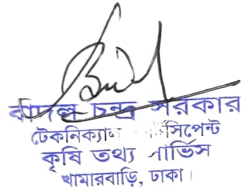 বাদল চন্দ্র সরকার
টেকনিক্যাল
কৃষি তথ্য সার্ভিস
খামারবাড়ি, ঢাকা।